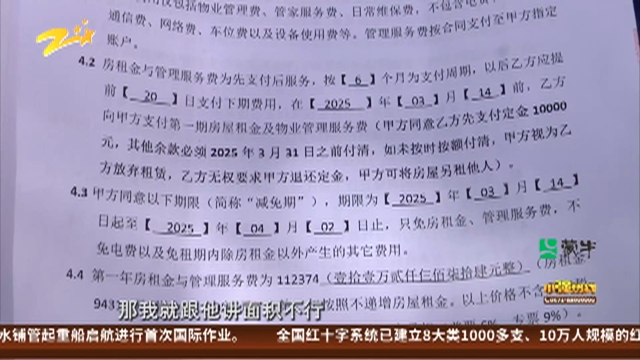 仅包括物业管理费、管家服务费、日常维保费，不包含电费、
通信费、网络费、车位费以及设备使用费等。管理服务费按合同支付至甲方指定
账户。
4.2 房租金与管理服务费为先支付后服务，按【 6 】个月为支付周期，以后乙方应提
前【 20 】日支付下期费用，在【 2025 】年【 03 】月【 14 】前，乙方
向甲方支付第一期房屋租金及物业管理服务费（甲方同意乙方先支付定金 10000
元，其他余款必须 2025 年 3 月 31 日之前付清，如未按时按额付清，甲方视为乙
方放弃租赁，乙方无权要求甲方退还定金，甲方可将房屋另租他人）。
4.3 甲方同意以下期限（简称“减免期”），期限为【 2025 】年【 03 】月【 14 】
日起至【 2025 】年【 04 】月【 02 】日止，只免房租金、管理服务费，不
免电费以及免租期内除房租金以外产生的其它费用。
4.4 第一年房租金与管理服务费为 112374（壹拾壹万贰仟叁佰柒拾肆元整）（房租金
943
按照不递增房屋租金。以上价格不含
专票 9%）。
蒙牛
那我就跟他讲面积不行
水铺管起重船启航进行首次国际作业。 全国红十字系统已建立8大类1000多支、10万人规模的红